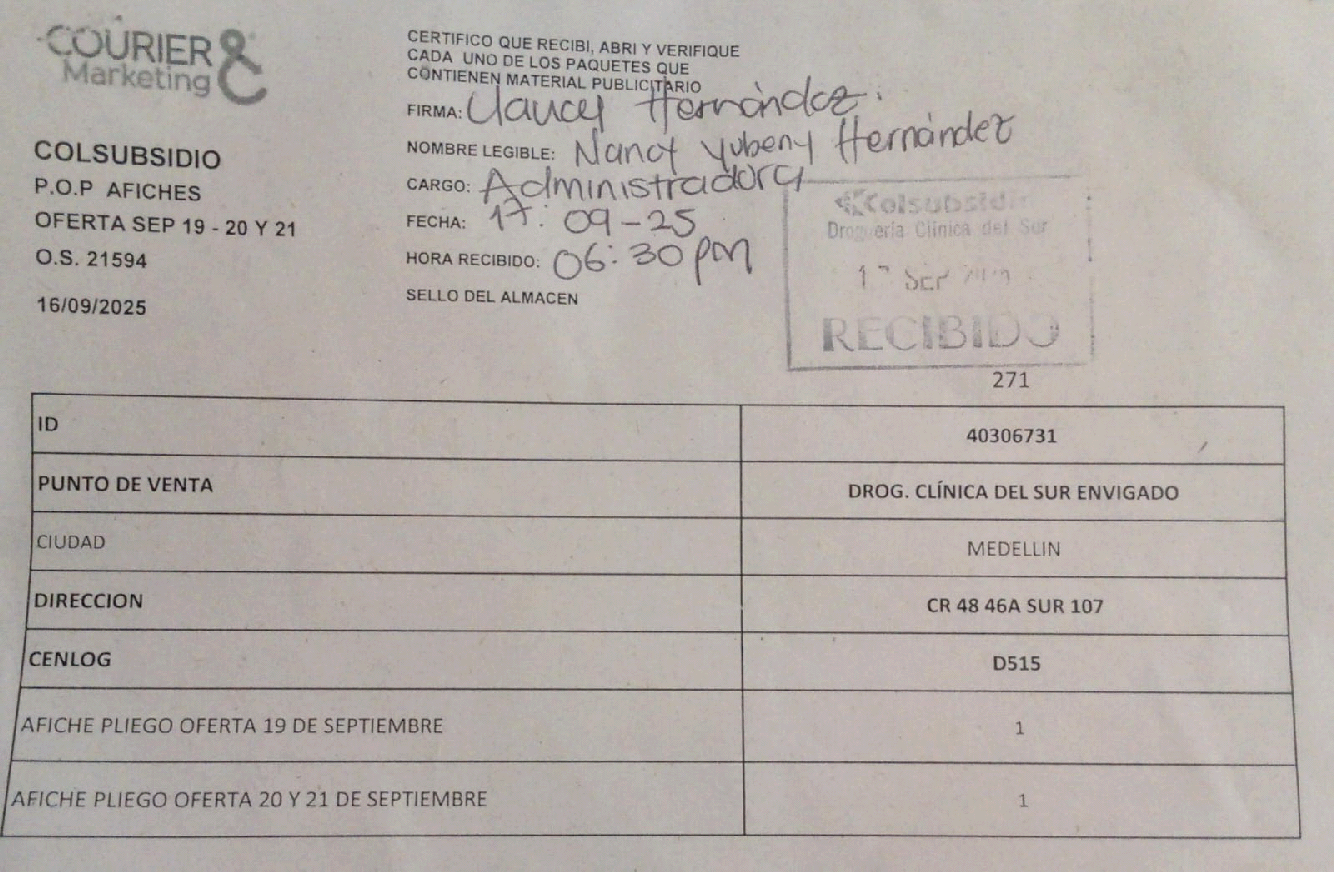 COURIER &
Marketing
COLSUBSIDIO
P.O.P AFICHES
OFERTA SEP 19 - 20 Y 21
O.S. 21594
16/09/2025
CERTIFICO QUE RECIBI, ABRI Y VERIFIQUE
CADA UNO DE LOS PAQUETES QUE
CONTIENEN MATERIAL PUBLICITARIO
FIRMA: Hernández
NOMBRE LEGIBLE: Nancy Yubeny Hernández
CARGO: Administradora
FECHA: 17-09-25
HORA RECIBIDO: 06:30 pm
SELLO DEL ALMACEN
Colsubsidio
Droguería Clínica del Sur
17 SEP
RECIBIDO
271
ID 40306731
PUNTO DE VENTA DROG. CLÍNICA DEL SUR ENVIGADO
CIUDAD MEDELLIN
DIRECCION CR 48 46A SUR 107
CENLOG D515
AFICHE PLIEGO OFERTA 19 DE SEPTIEMBRE 1
AFICHE PLIEGO OFERTA 20 Y 21 DE SEPTIEMBRE 1